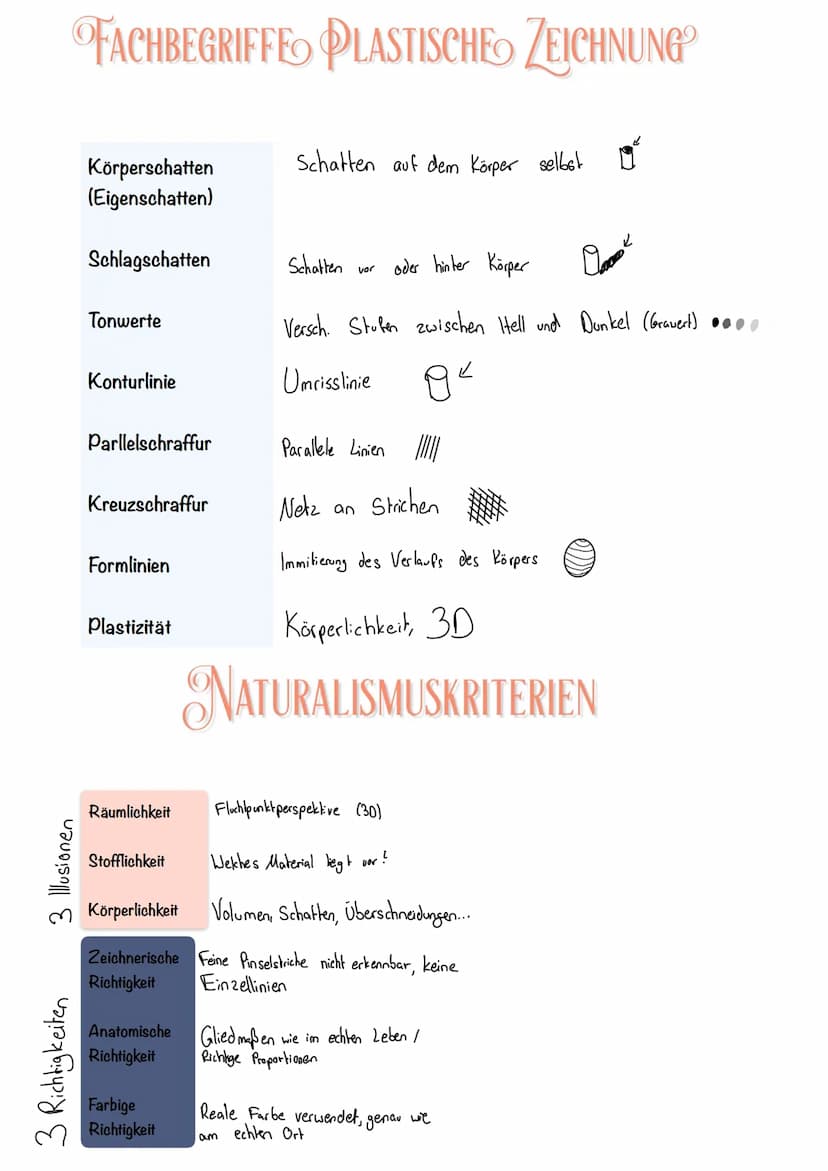 FACHBEGRIFFE PLASTISCHE ZEICHNUNG
Körperschatten Schatten auf dem Körper selbst
(Eigenschatten)
Schlagschatten Schatten vor oder hinter Körper
Tonwerte Versch. Stufen zwischen Hell und Dunkel (Grauwert)
Konturlinie Umrisslinie
Parllelschraffur Parallele Linien
Kreuzschraffur Netz an Strichen
Formlinien Immitierung des Verlaufs des Körpers
Plastizität Körperlichkeit, 3D
NATURALISMUSKRITERIEN
3 Illusionen
Räumlichkeit Fluchtpunktperspektive (3D)
Stofflichkeit Welches Material liegt vor?
Körperlichkeit Volumen, Schatten, Überschneidungen...
3 Richtigkeiten
Zeichnerische Feine Pinselstriche nicht erkennbar, keine
Richtigkeit Einzellinien
Anatomische Gliedmaßen wie im echten Leben /
Richtigkeit Richtige Proportionen
Farbige Reale Farbe verwendet, genau wie
Richtigkeit am echten Ort